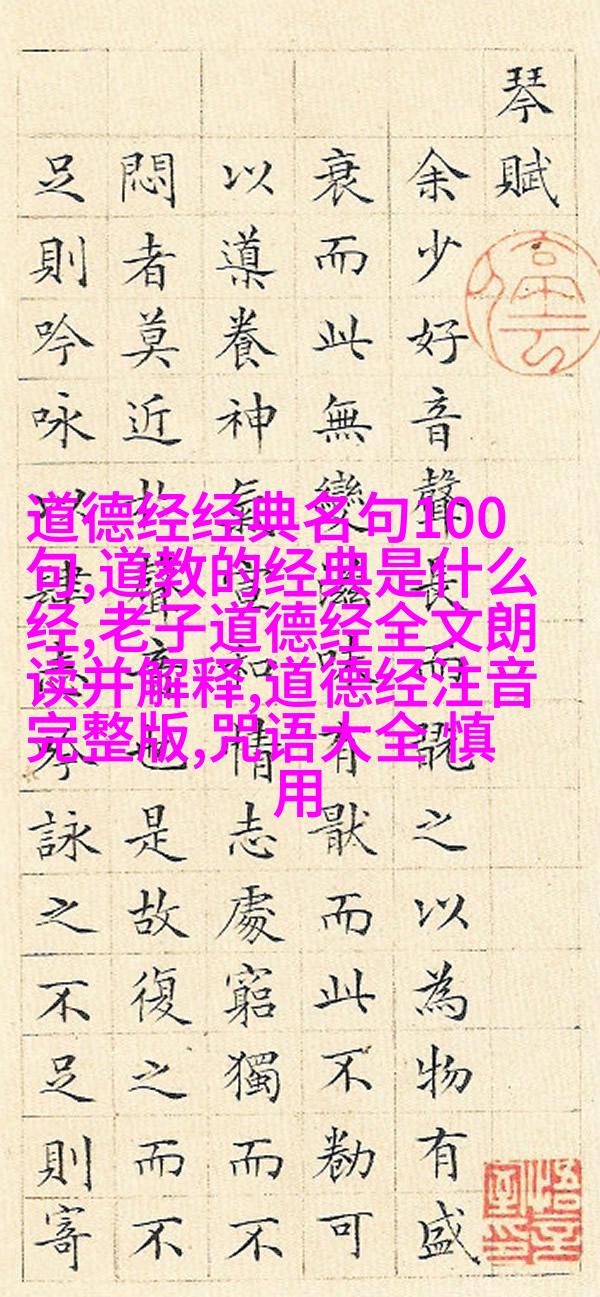 琴賦
余少好音聲長而翫之以為物有盛
衰而此無變滋味有猒而此不勌可
以導養神氣宣和情志處窮獨而不
悶者莫近扵聲音也是故復之而不
足則吟咏以肆志吟詠之不足則寄
道德经经典名句100
句,道教的经典是什么
经,老子道德经全文朗
读并解释,道德经注音
完整版,咒语大全 慎
用